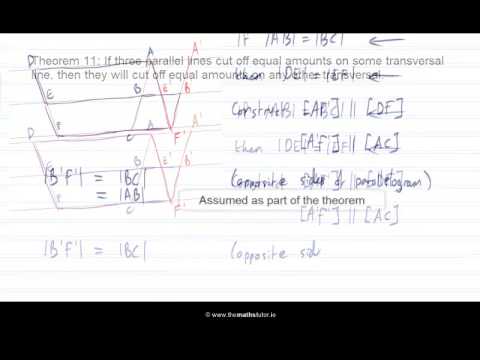 Theorem 11: If three parallel lines cut off equal amounts on some transversal
line, then they will cut off equal amounts on any other transversal
If |AB| = |BC|
then |DE| = |EF|
Construct [AE'] || [DF]
[A'F'] || [AC]
then
D A A'
E B E' B'
F C F'
D A A'
E B E' B'
F C F'
|B'F'| = |BC|
= |AB|
(opposite sides of parallelogram)
Assumed as part of the theorem
[A'F'] || [AC]
|B'F'| = |BC|
(opposite sid
© www.themathstutor.ie